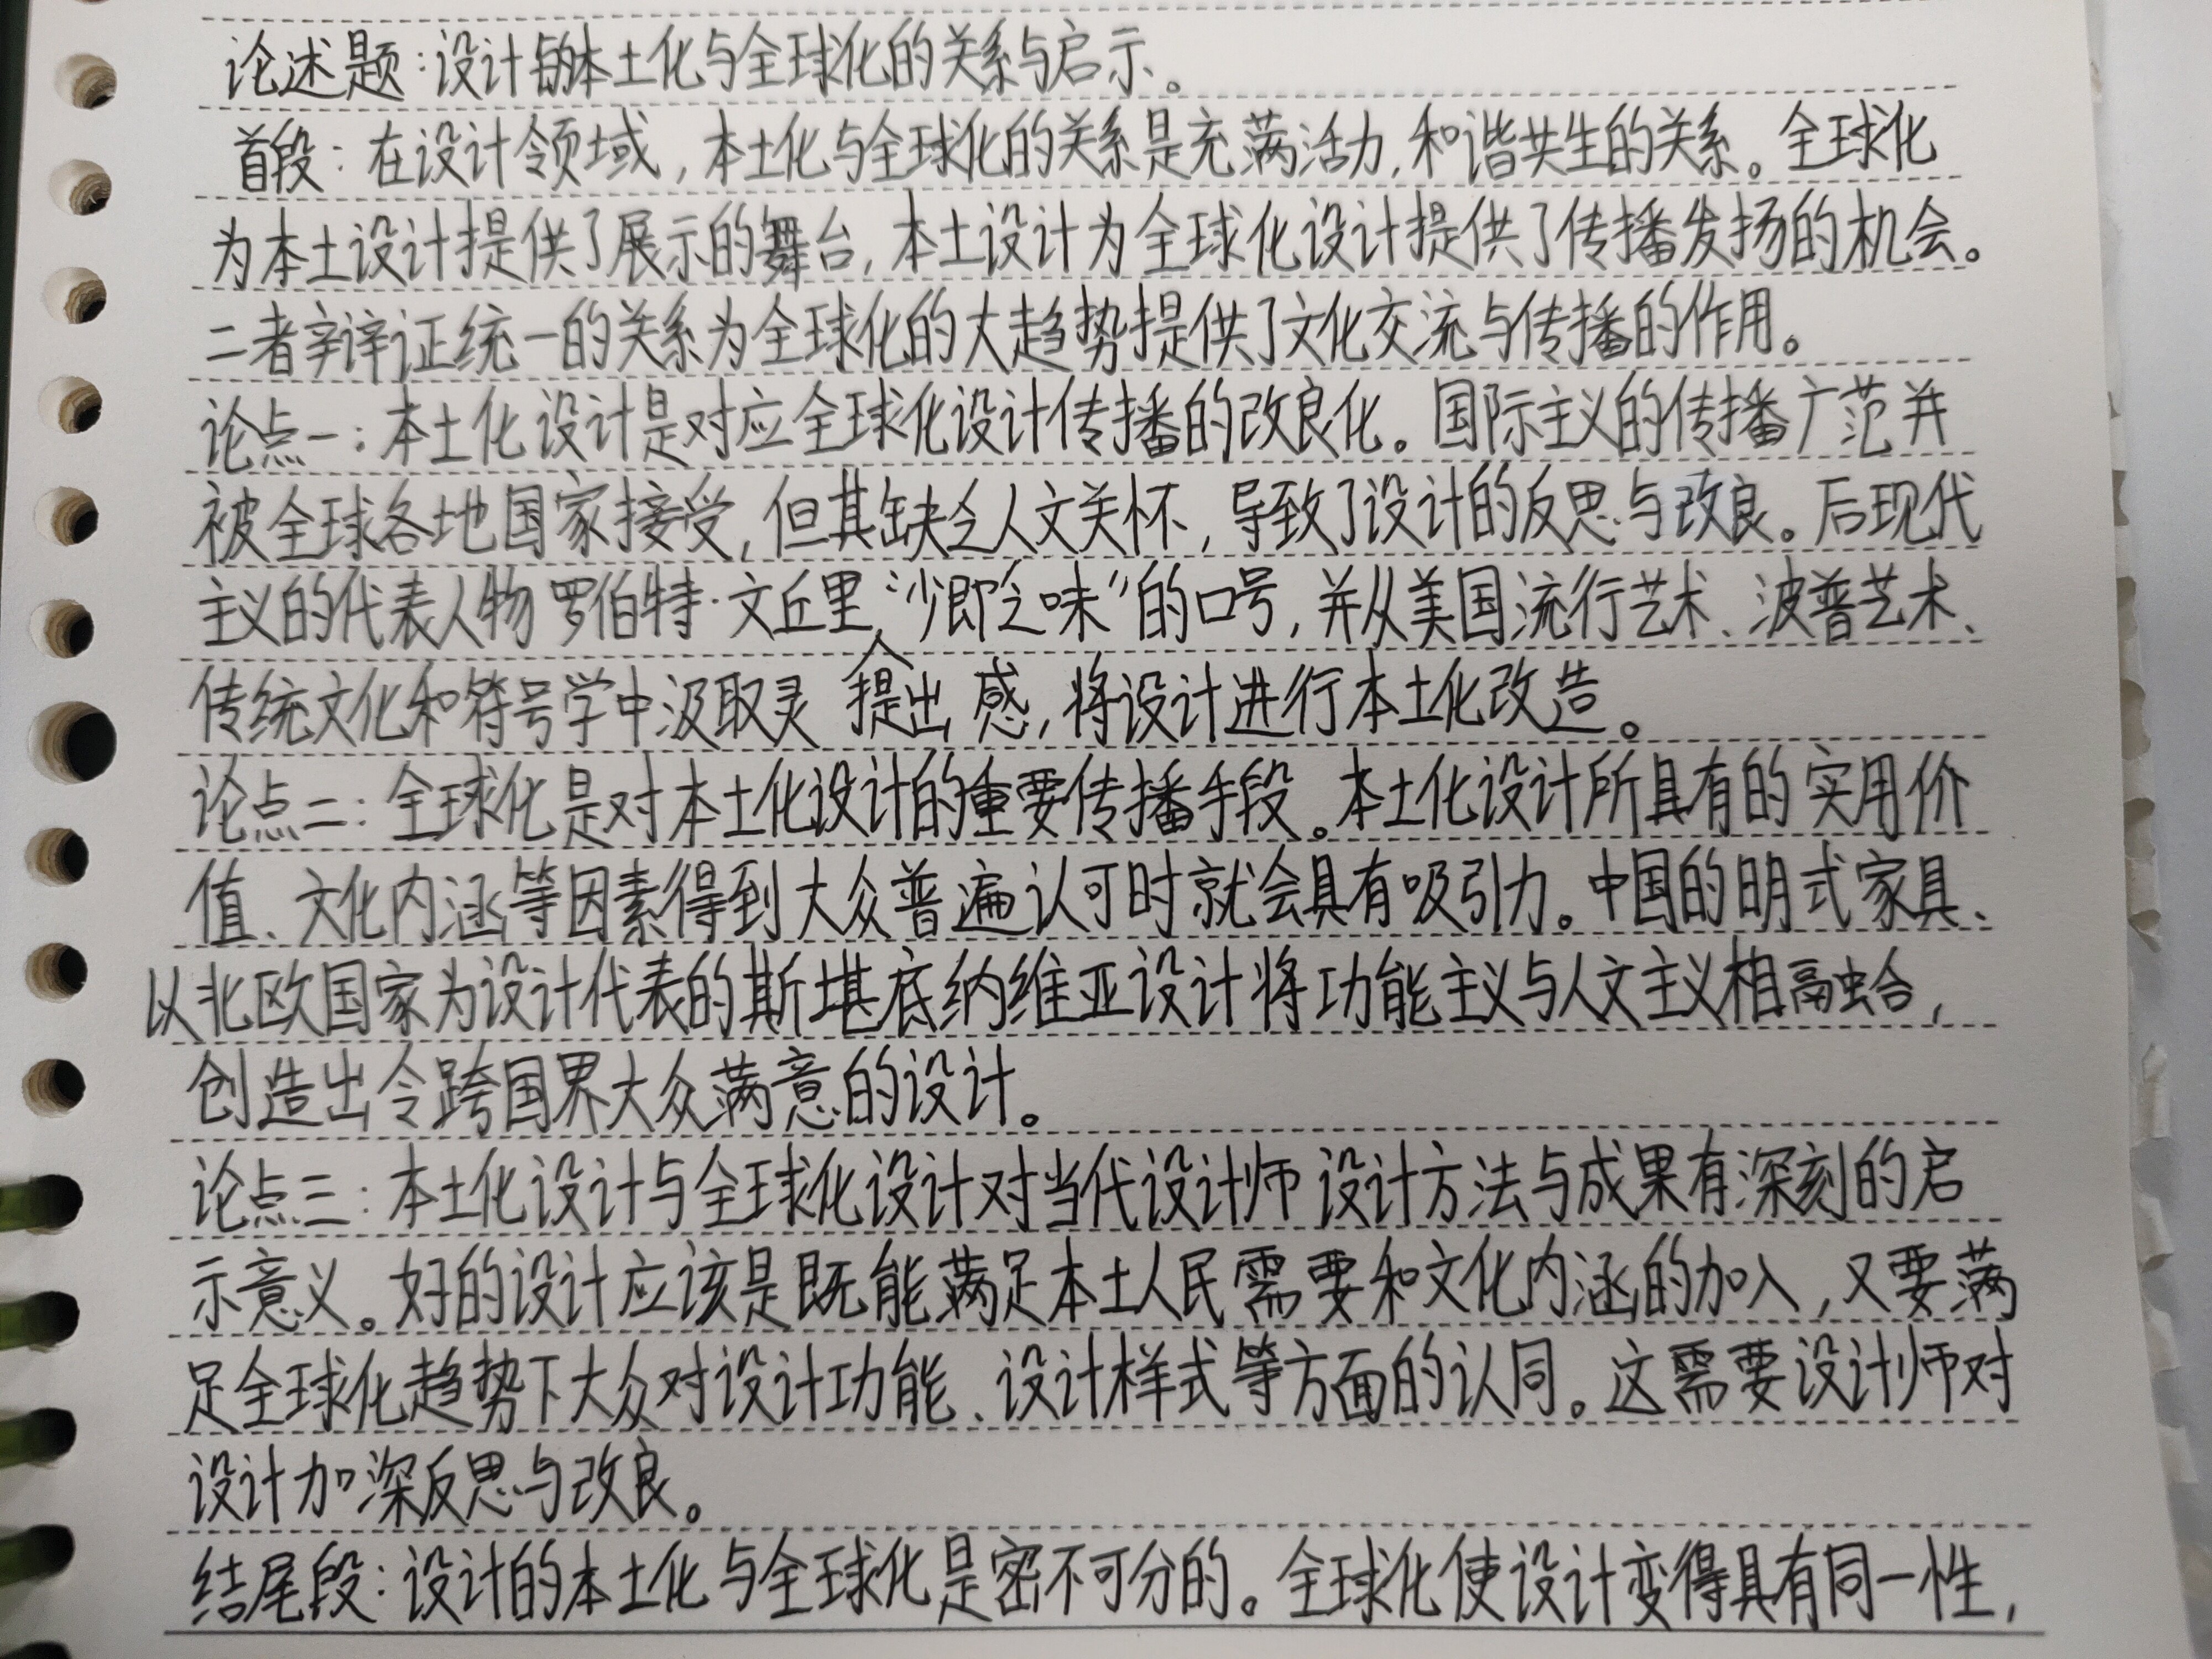 论述题:设计的本土化与全球化的关系与启示。
首段:在设计领域,本土化与全球化的关系是充满活力,和谐共生的关系。全球化
为本土设计提供了展示的舞台,本土设计为全球化设计提供了传播发扬的机会。
二者辩证统一的关系为全球化的大趋势提供了文化交流与传播的作用。
论点一:本土化设计是对应全球化设计传播的改良化。国际主义的传播广范并
被全球各地国家接受,但其缺乏人文关怀,导致了设计的反思与改良。后现代
主义的代表人物罗伯特·文丘里“少即乏味”的口号,并从美国流行艺术、波普艺术、
传统文化和符号学中汲取灵 提出 感,将设计进行本土化改造。
论点二:全球化是对本土化设计的重要传播手段。本土化设计所具有的实用价
值、文化内涵等因素得到大众普遍认可时就会具有吸引力。中国的明式家具、
以北欧国家为设计代表的斯堪底纳维亚设计将功能主义与人文主义相融合,
创造出令跨国界大众满意的设计。
论点三:本土化设计与全球化设计对当代设计师设计方法与成果有深刻的启
示意义。好的设计应该是既能满足本土人民需要和文化内涵的加入,又要满
足全球化趋势下大众对设计功能、设计样式等方面的认同。这需要设计师对
设计加深反思与改良。
结尾段:设计的本土化与全球化是密不可分的。全球化使设计变得具有同一性,